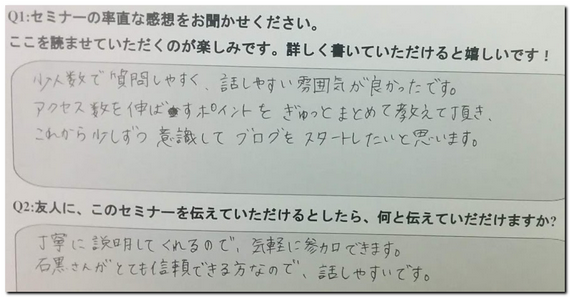 Q1:セミナーの率直な感想をお聞かせください。
ここを読ませていただくのが楽しみです。詳しく書いていただけると嬉しいです！
少人数で質問しやすく、話しやすい雰囲気が良かったです。
アクセス数を伸ばすポイントをぎゅっとまとめて教えて頂き、
これから少しずつ意識してブログをスタートしたいと思います。
Q2:友人に、このセミナーを伝えていただけるとしたら、何と伝えていだだけますか?
丁寧に説明してくれるので、気軽に参加できます。
石黒さんがとても信頼できる方なので、話しやすいです。